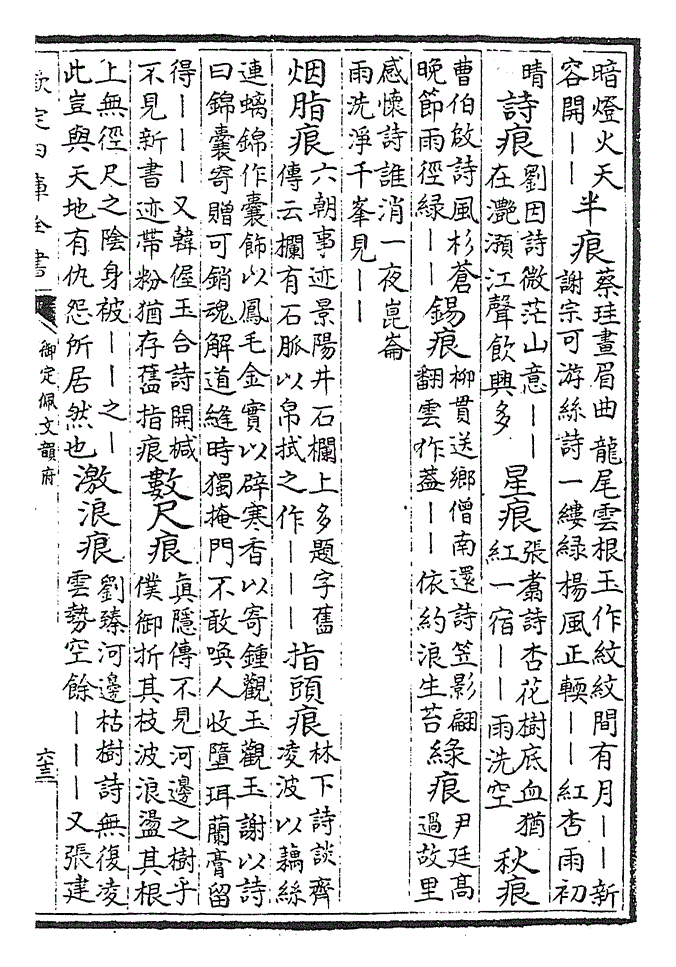 暗燈火天
容開——
半痕
蔡珪畫眉曲龍尾雲根玉作紋紋間有月——新
謝宗可游絲詩一縷綠楊風正輭——紅杏雨初
晴
詩痕
劉因詩微茫山意——
在灔澦江聲飲興多
星痕
張翥詩杏花樹底血猶
紅一宿——雨洗空
秋痕
曹伯啟詩風杉蒼
晚節雨徑綠——
錫痕
柳貫送鄉僧南還詩笠影翩
翻雲作蓋——依約浪生苔
綠痕
尹廷高
過故里
感懷詩誰消一夜崑崙
雨洗淨千峯見——
烟脂痕
六朝事迹景陽井石欄上多題字舊
傳云欄有石脈以帛拭之作———
指頭痕
林下詩談齊
凌波以藕絲
連螭錦作囊飾以鳳毛金實以辟寒香以寄鍾觀玉觀玉謝以詩
曰錦囊寄贈可銷魂解道縫時獨掩門不敢喚人收墮珥蘭膏留
得———又韓偓玉合詩開緘
不見新書迹帶粉猶存舊指痕
數尺痕
眞隱傳不見河邊之樹乎
僕御折其枝波浪盪其根
上無徑尺之陰身被——之—
此豈與天地有仇怨所居然也
激浪痕
劉臻河邊枯樹詩無復凌
雲勢空餘———又張建
欽定四庫全書
御定佩文韻府
六十三